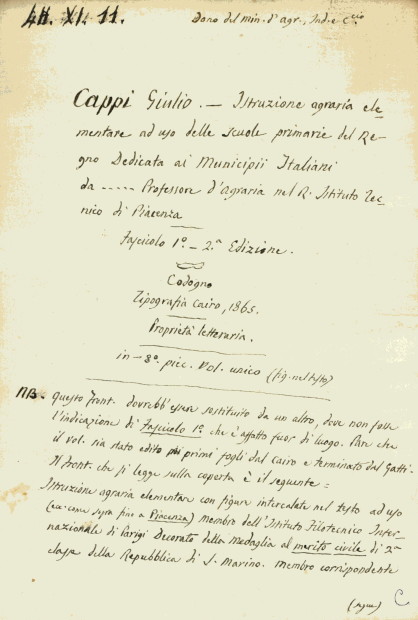 44. XI. 11.
Dono del min. d'agr., Ind. e C.cio
Cappi Giulio. — Istruzione agraria ele-
mentare ad uso delle scuole primarie del Re-
gno Dedicata ai Municipii Italiani
da ----- Professore d'agraria nel R. Istituto Tec-
nico di Piacenza
Fascicolo 1.º — 2.ª Edizione.
Codogno
Tipografia Cairo, 1865.
Proprietà letteraria.
in-8º. picc. Vol. unico (fig. nel testo)
NB. Questo front. dovrebb'essere sostituito da un altro, dove non fosse
l'indicazione di fascicolo 1º. che è affatto fuor di luogo. Pare che
il vol. sia stato edito pei primi fogli dal Cairo e terminato dal Gatti.
Il front. che si legge sulla coperta è il seguente =
Istruzione agraria elementare con figure intercalate nel testo ad uso
(ecc. come sopra fino a Piacenza) membro dell'Istituto Filotecnico Inter-
nazionale di Parigi Decorato della Medaglia al merito civile di 2ª
classe della Repubblica di S. Marino. membro corrispondente
(segue)